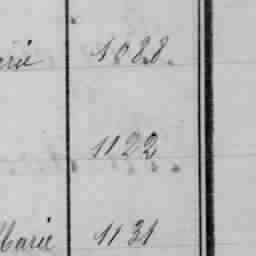 1088.
1122
Marie 1131